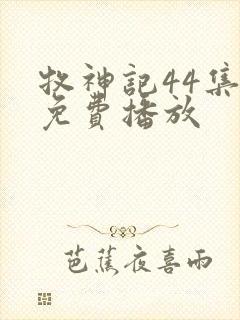 牧神記44集
免費播放
芭蕉夜喜雨